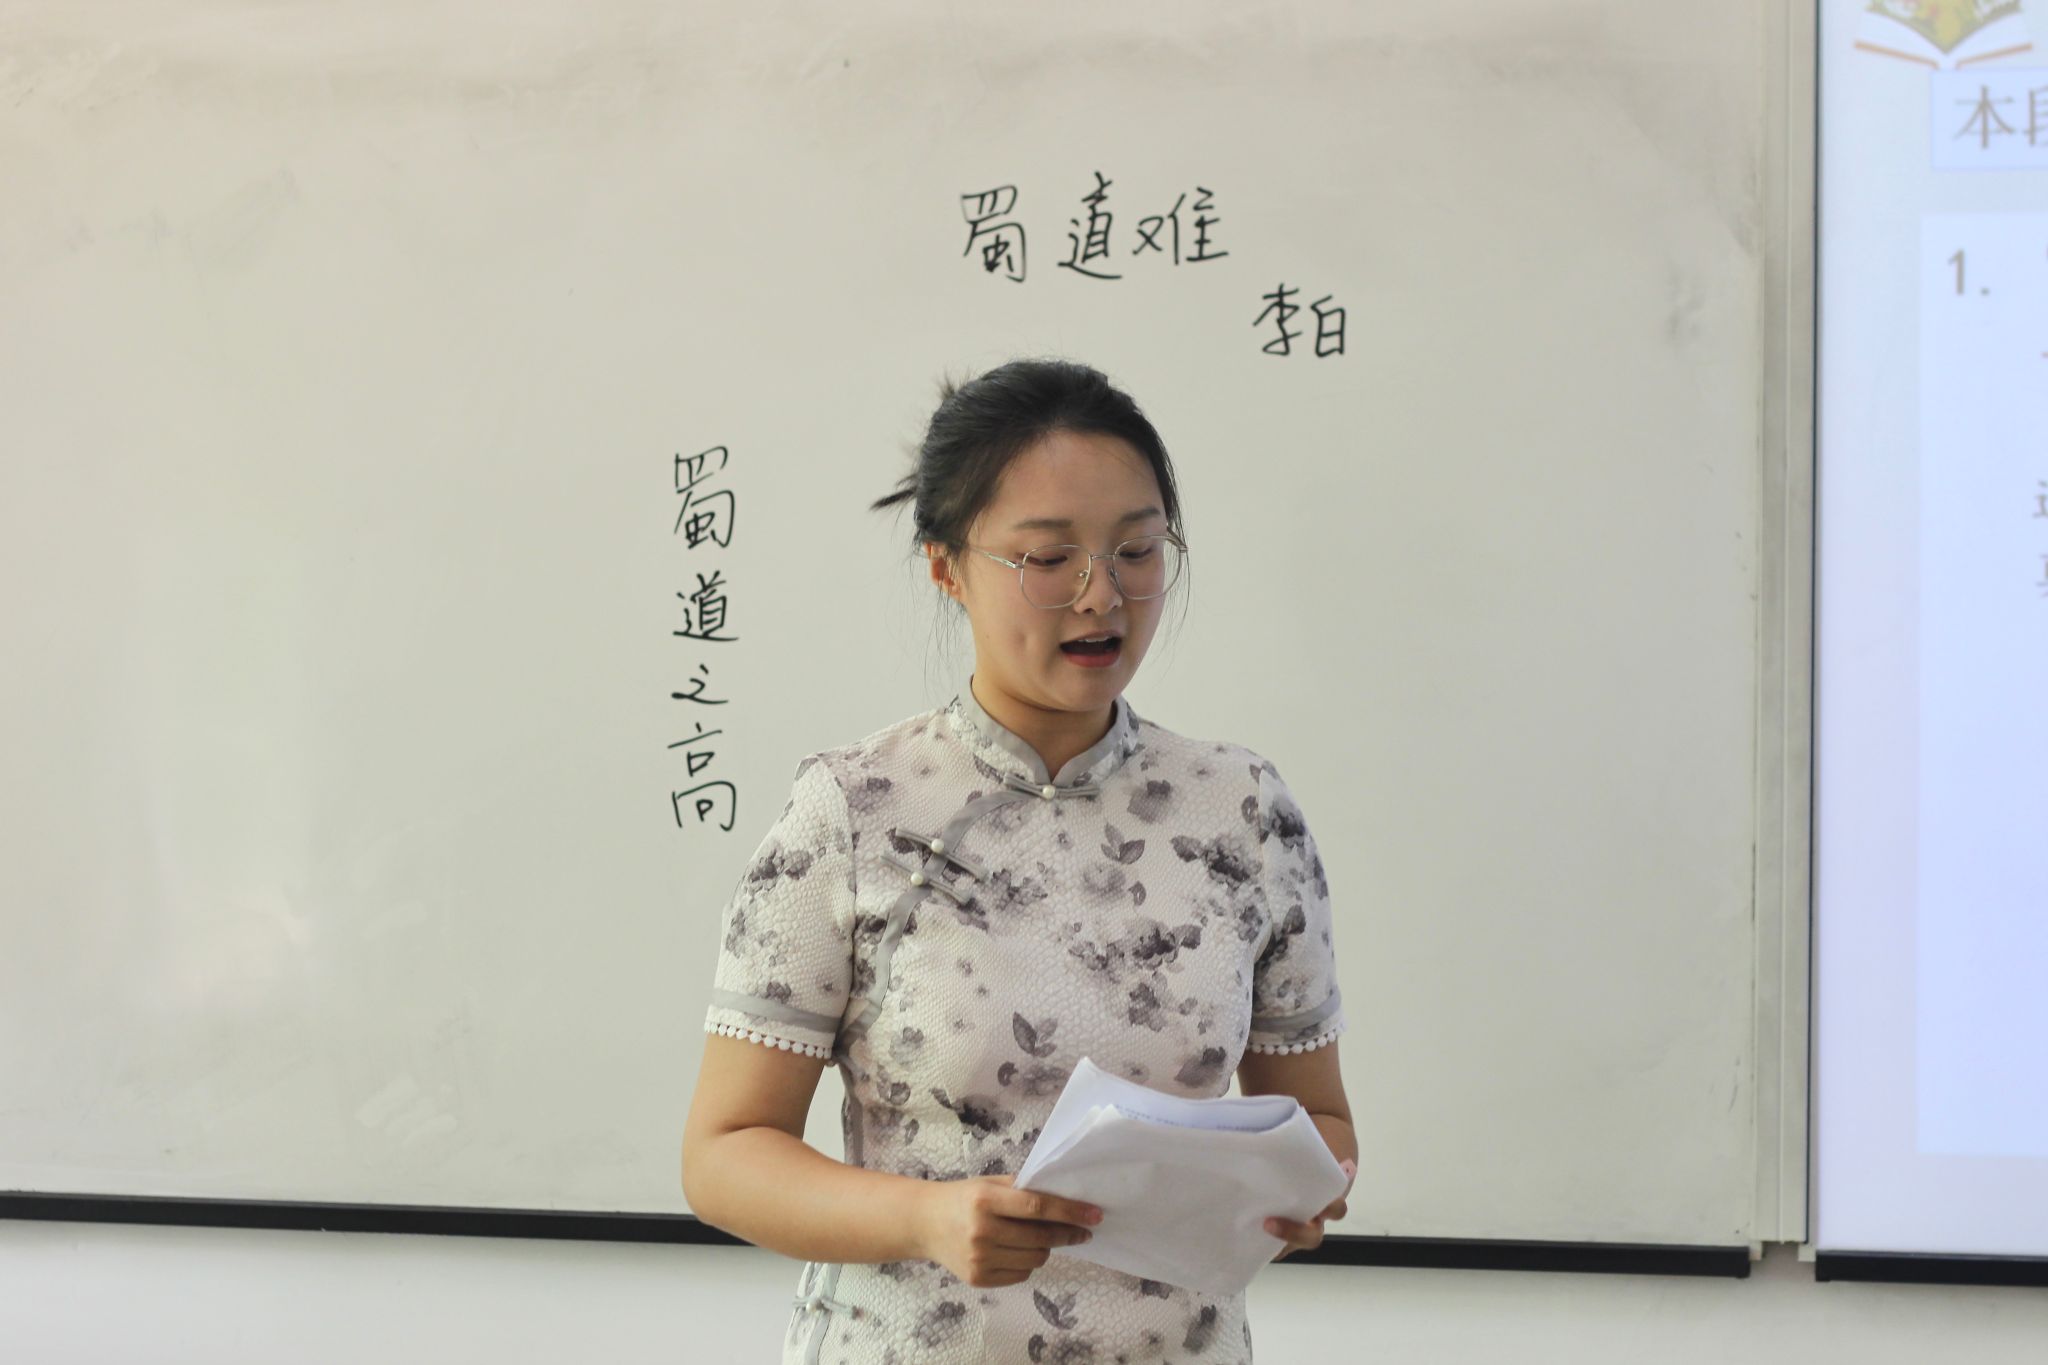 蜀道难
李白
蜀道之高
本段
1.